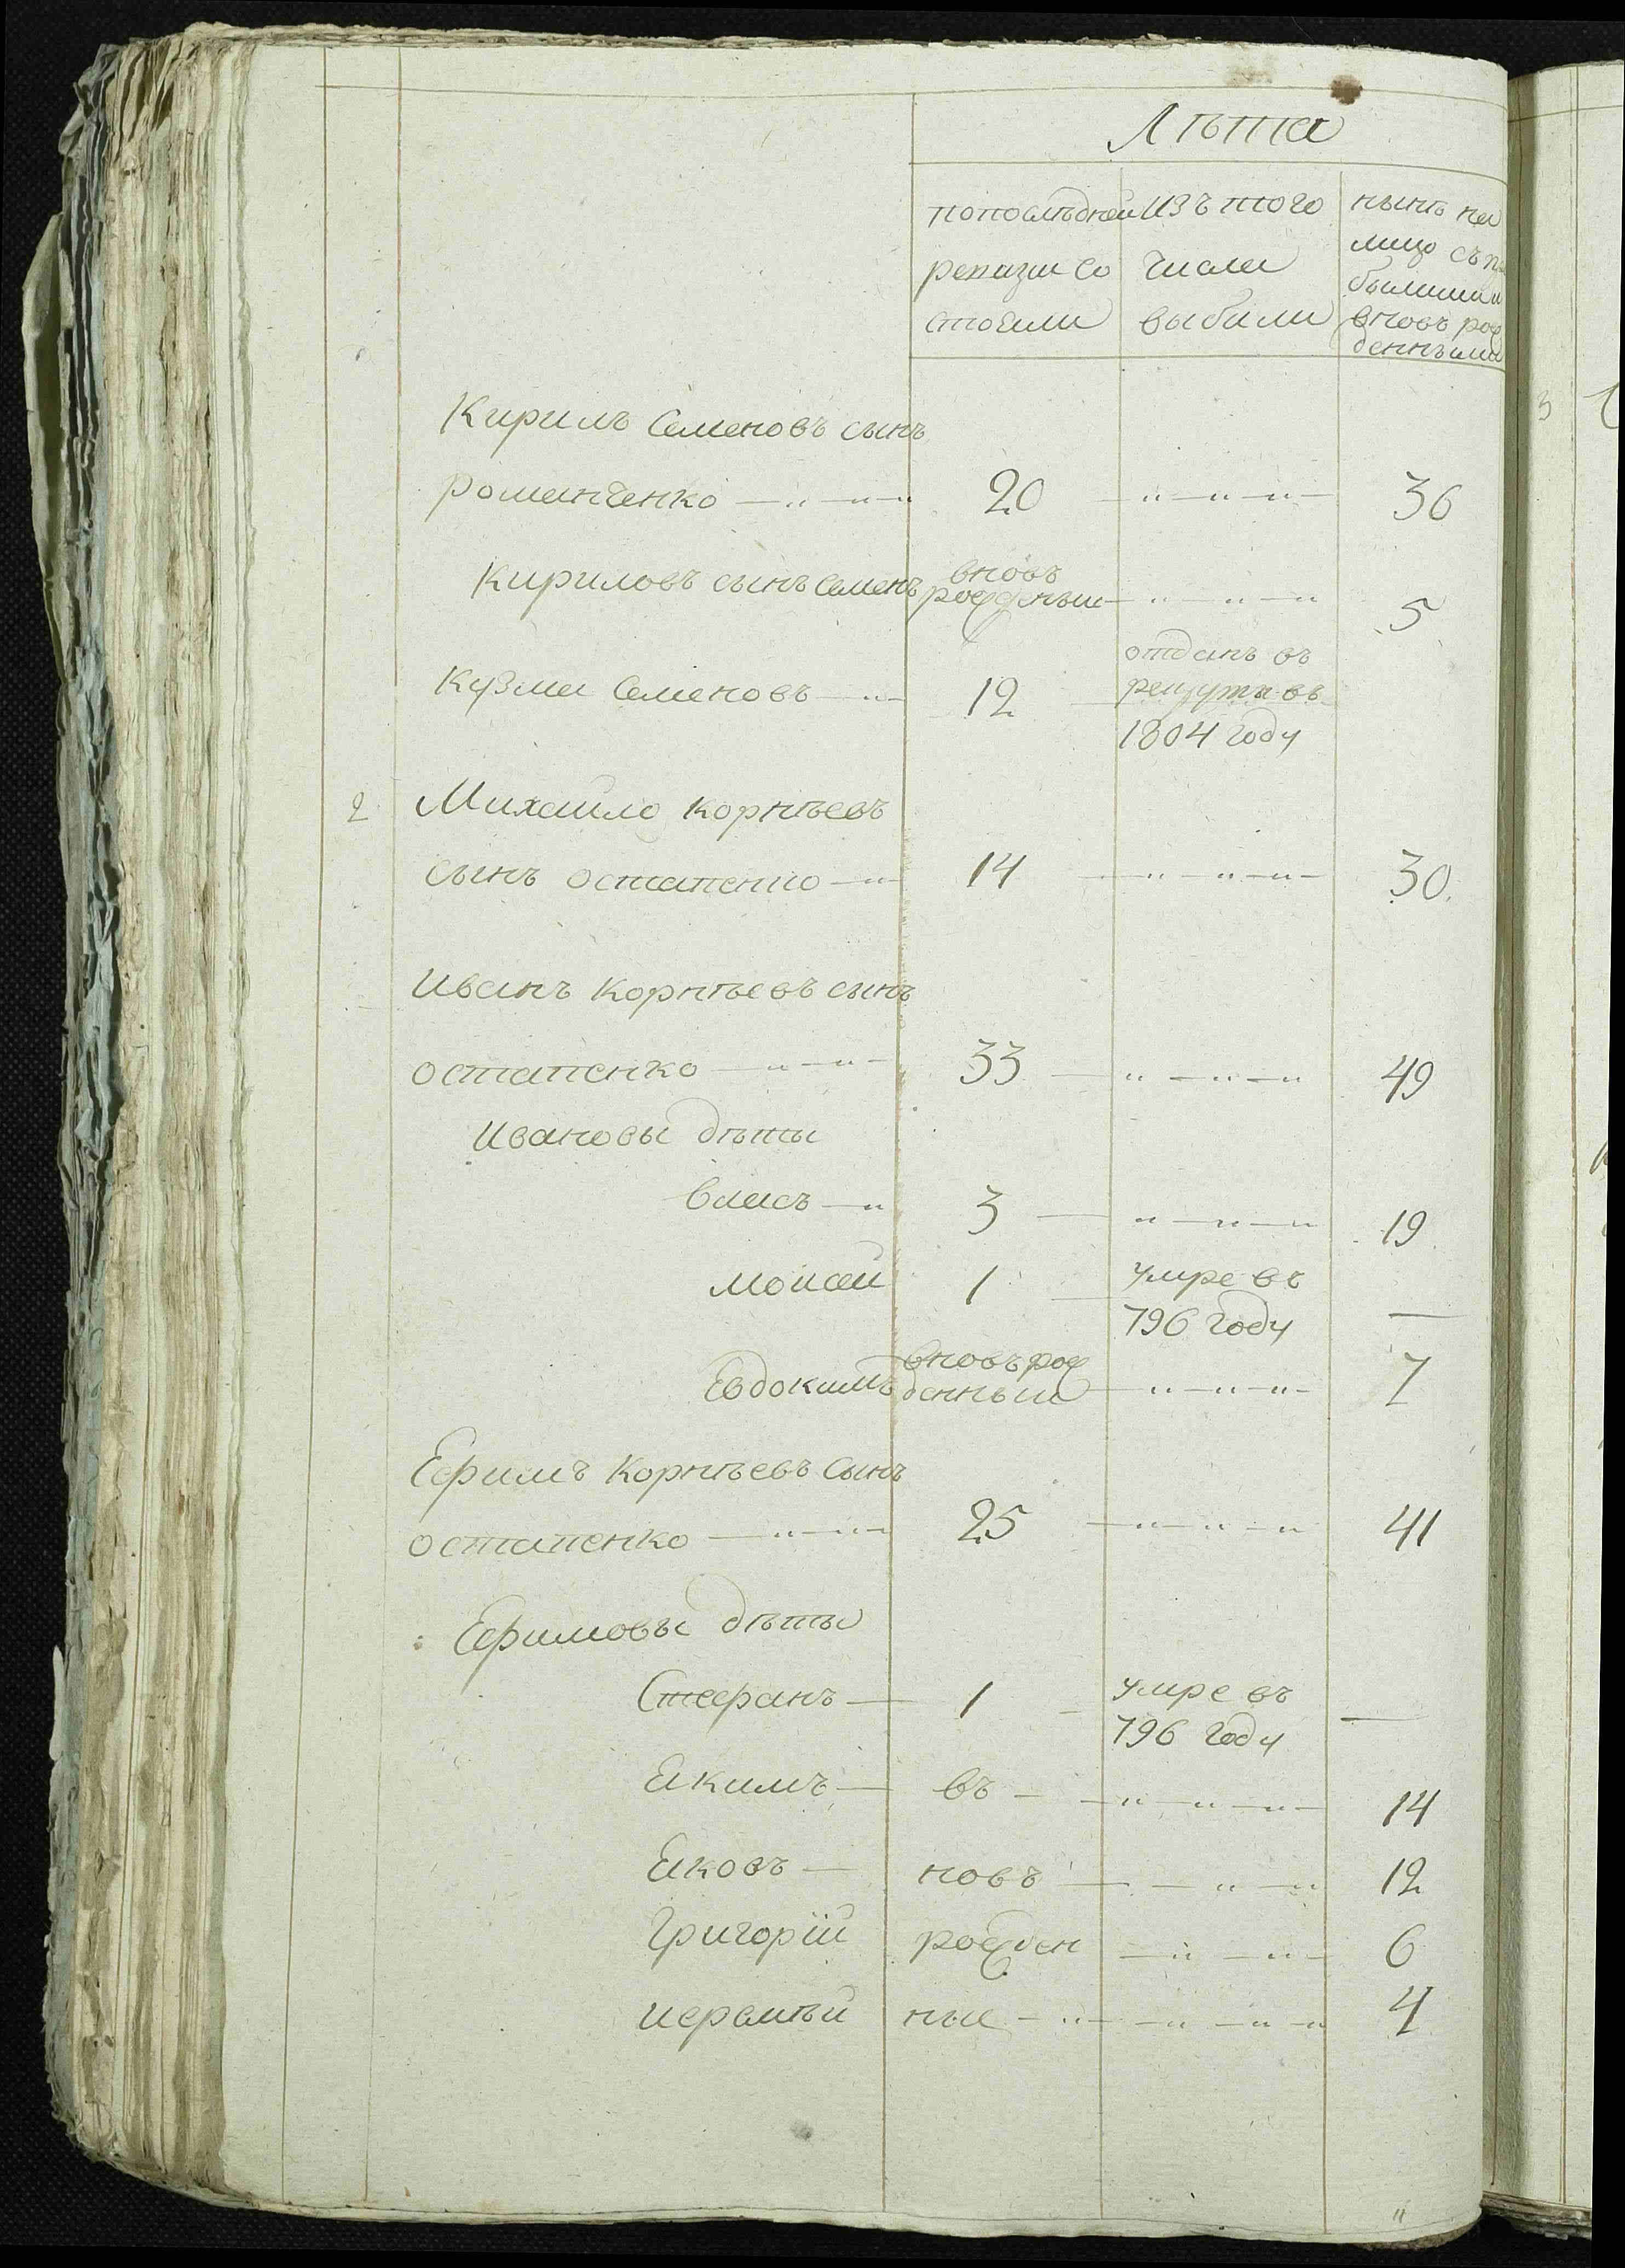 Лѣта
по последней изъ того нынѣ на
лицо съ при
ревизи со числа былыми и
стояли выбыли вновь рож
денными
Кирилъ Семеновъ сынъ
Романченко 20 36
Кириловъ сынъ Семенъ вновь
рожденый 5
отданъ въ
Кузма Семеновъ 12 рекруты въ
1804 году
2 Михайло Корнѣевъ
сынъ Остапенко 14 30
Иванъ Корнѣевъ сынъ
Остапенко 33 49
Ивановы дѣти
Власъ 3 19
Моисей 1 умре въ
796 году
Евдокимъ вновь рож
денный 7
Ефимъ Корнѣевъ сынъ
Остапенко 25 41
Ефимовы дѣти
Стефанъ 1 умре въ
796 году
Якимъ въ 14
Яковъ новь 12
Григорїй рожден 6
Иеремѣй ные 4
3